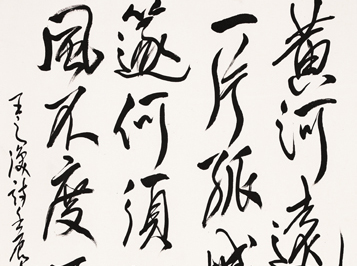 黄河遠
一片孤城
篴何須
風不度
王之渙詩壬辰